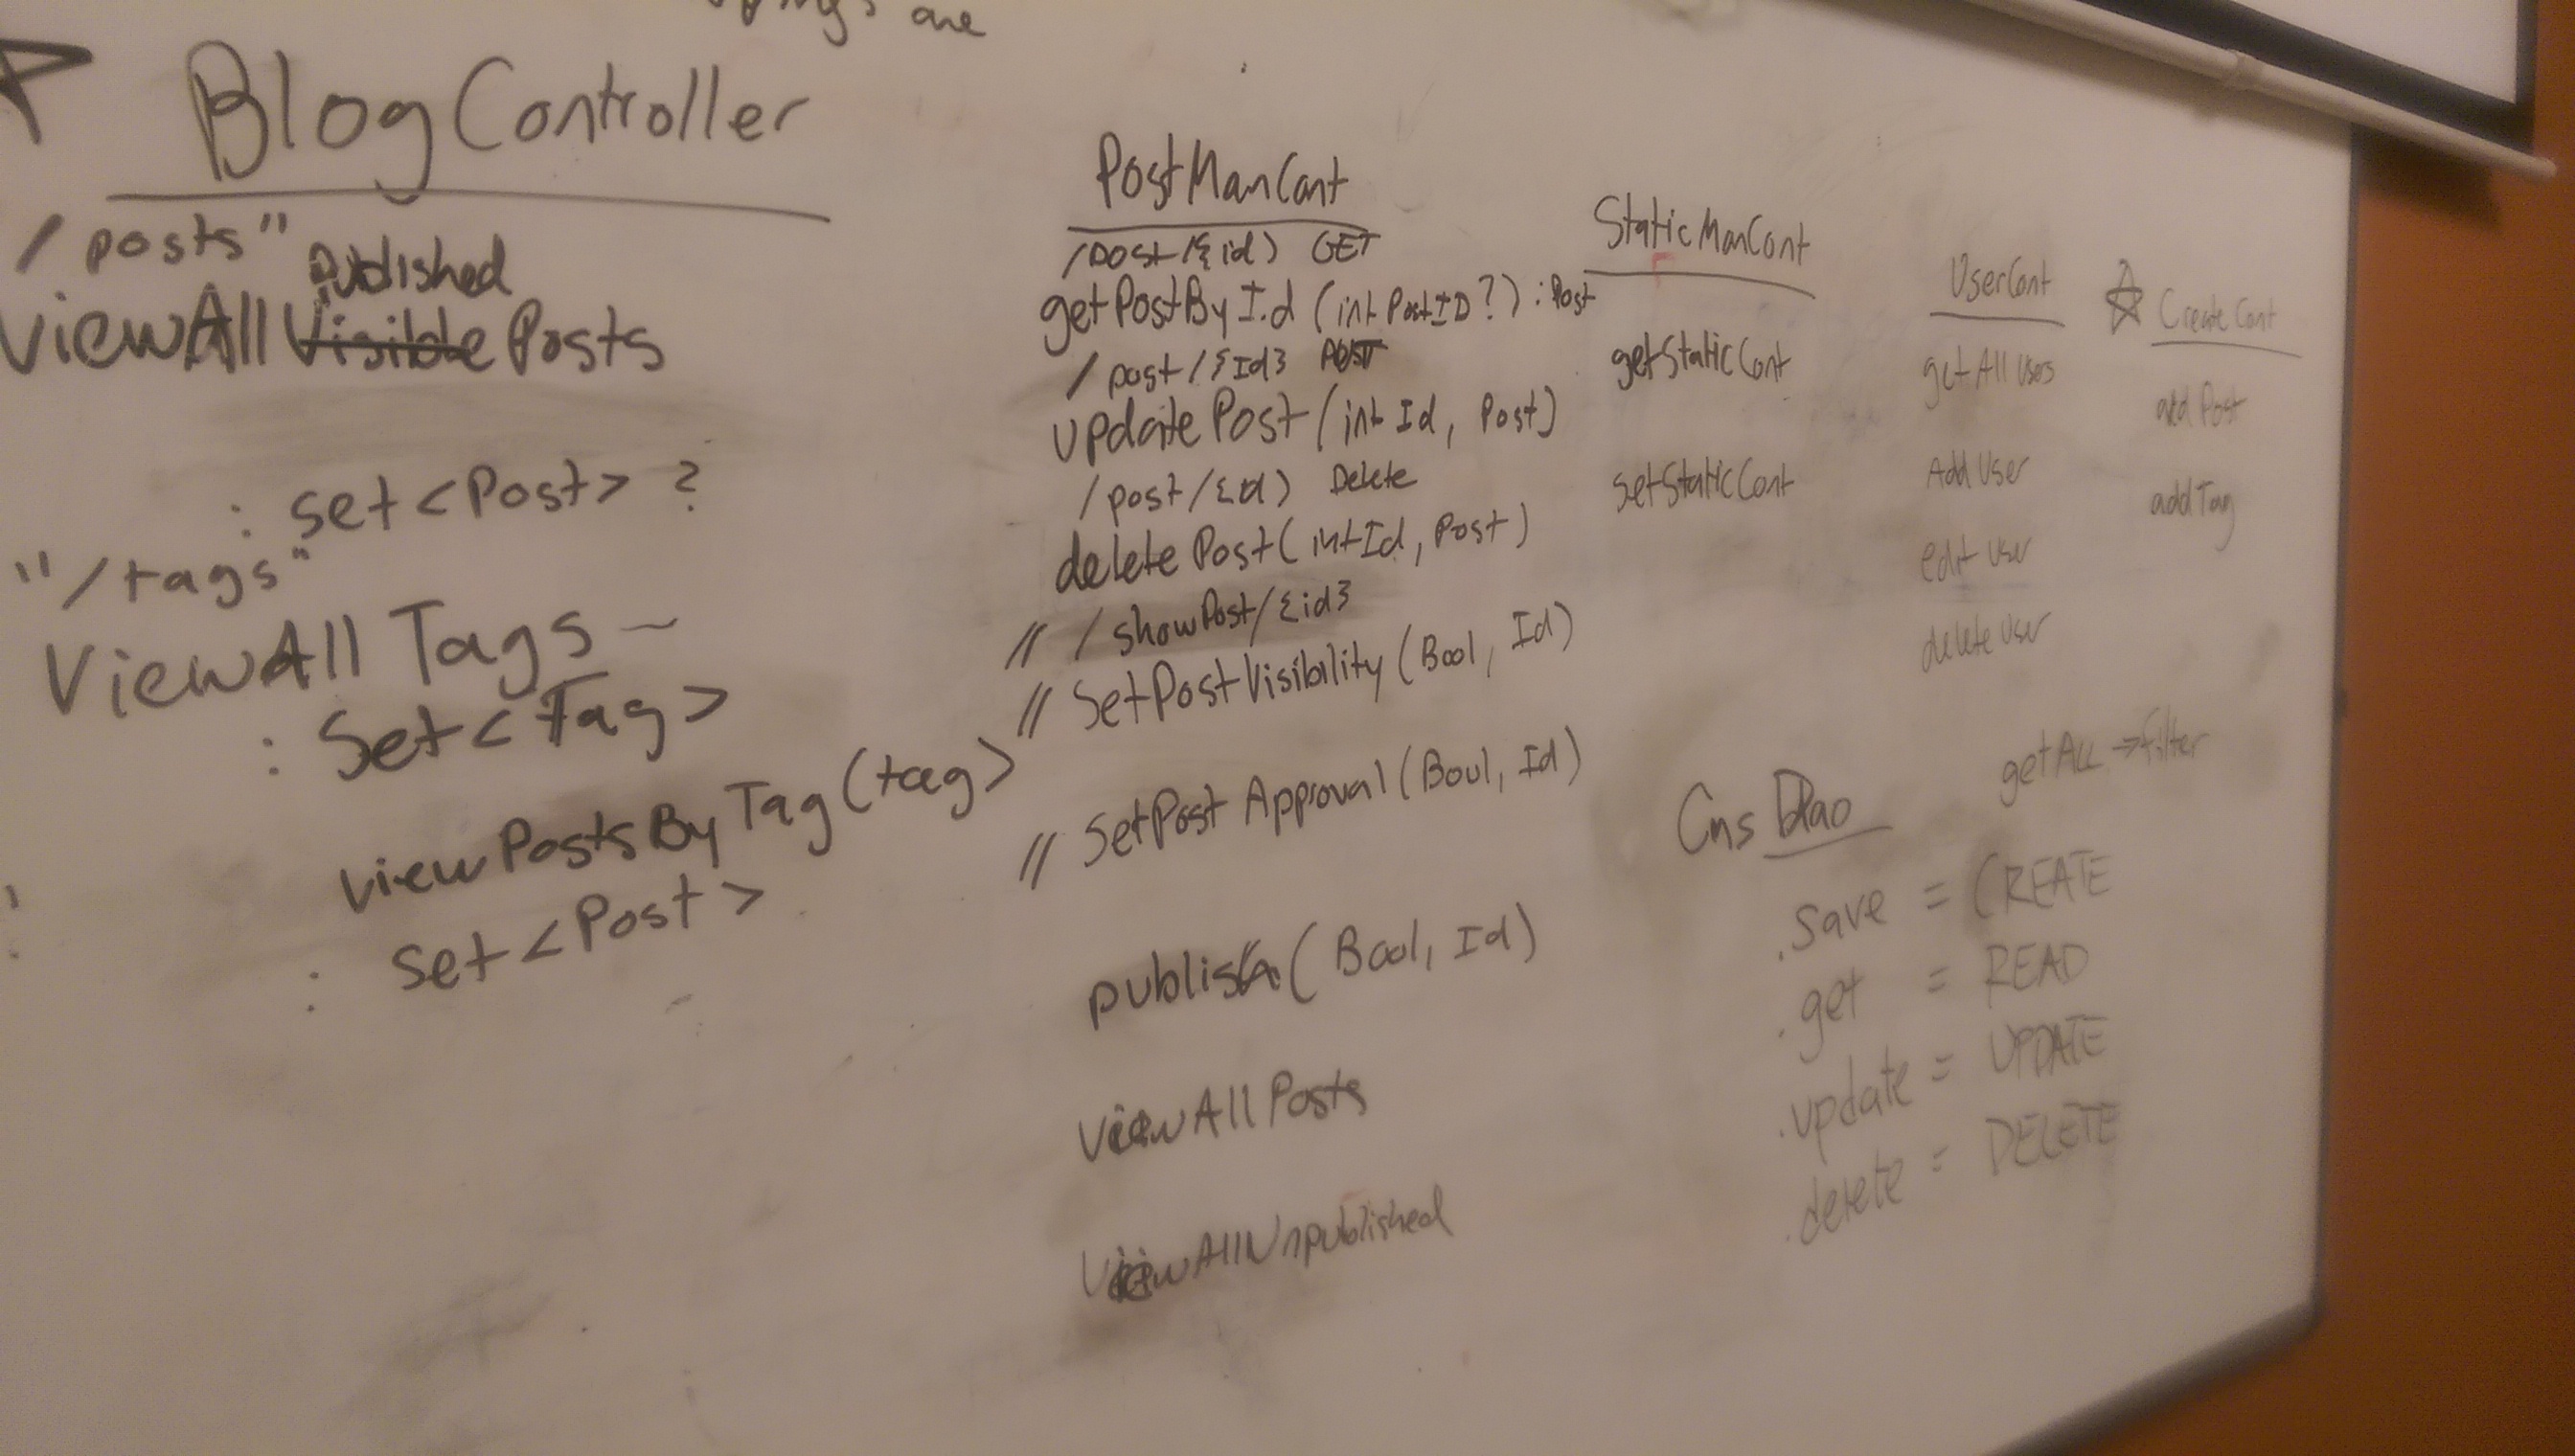 are
BlogController
/posts"
published
ViewAll Visible Posts
: set<Post> ?
"/tags"
ViewAll Tags –
: Set<Tag>
viewPostsByTag(tag>
: Set<Post>
PostManCont
/post/{id) GET
getPostById (int PostID?) : Post
/post/{Id} POST
updatePost(int Id, Post)
/post/{id) Delete
deletePost(int Id, Post)
// /showPost/{id}
// SetPostVisibility(Bool, Id)
// SetPost Approval(Bool, Id)
publish(Bool, Id)
ViewAllPosts
ViewAllUnpublished
StaticManCont
getStaticCont
SetStaticCont
UserCont
getAllUsers
Add User
edit User
delete User
Create Cont
add Post
addTag
getALL → filter
Cms Dao
.save = CREATE
.get = READ
.update = UPDATE
.delete = DELETE